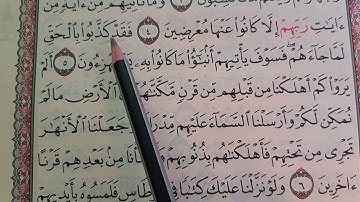 وَمَا تَأْتِيهِم مِّنْ ءَايَةٍ مِّنْ
ءَايَٰتِ رَبِّهِمْ إِلَّا كَانُوا۟ عَنْهَا مُعْرِضِينَ ٤ فَقَدْ كَذَّبُوا۟ بِٱلْحَقِّ
لَمَّا جَآءَهُمْ فَسَوْفَ يَأْتِيهِمْ أَنۢبَٰٓؤُا۟ مَا كَانُوا۟ بِهِۦ يَسْتَهْزِءُونَ ٥ أَلَمْ
يَرَوْا۟ كَمْ أَهْلَكْنَا مِن قَبْلِهِم مِّن قَرْنٍ مَّكَّنَّٰهُمْ ٱلْأَرْضِ مَا لَمْ
نُمَكِّن لَّكُمْ وَأَرْسَلْنَا ٱلسَّمَآءَ عَلَيْهِم مِّدْرَا جَعَلْنَا ٱلْأَنْهَٰرَ
تَجْرِى مِن تَحْتِهِمْ فَأَهْلَكْنَٰهُم بِذُنُوبِهِمْ شَأْنَا مِنۢ بَعْدِهِمْ قَرْنًا
ءَاخَرِينَ ٦ وَلَوْ نَزَّلْنَا عَلَيْكَ كِتَٰبًا طَاسٍ فَلَمَسُوهُ بِأَيْدِيهِمْ